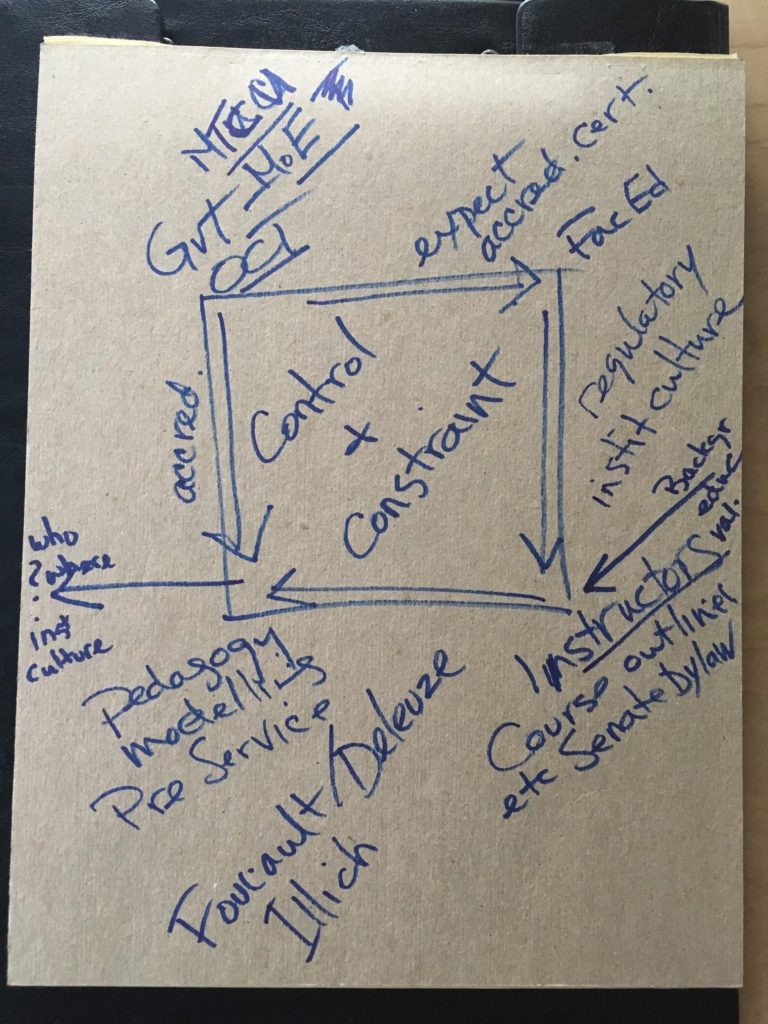 Gvt - MoE
OCT
expect
accred. cert.
Fac Ed
accred.
Control
+
Constraint
regulatory
instit culture
Backgr
educ
val.
who
? where
inst
culture
Instructors
Course outlines
etc Senate Bylaw
Pedagogy
modelling
Pre Service
Foucault/Deleuze
Illich